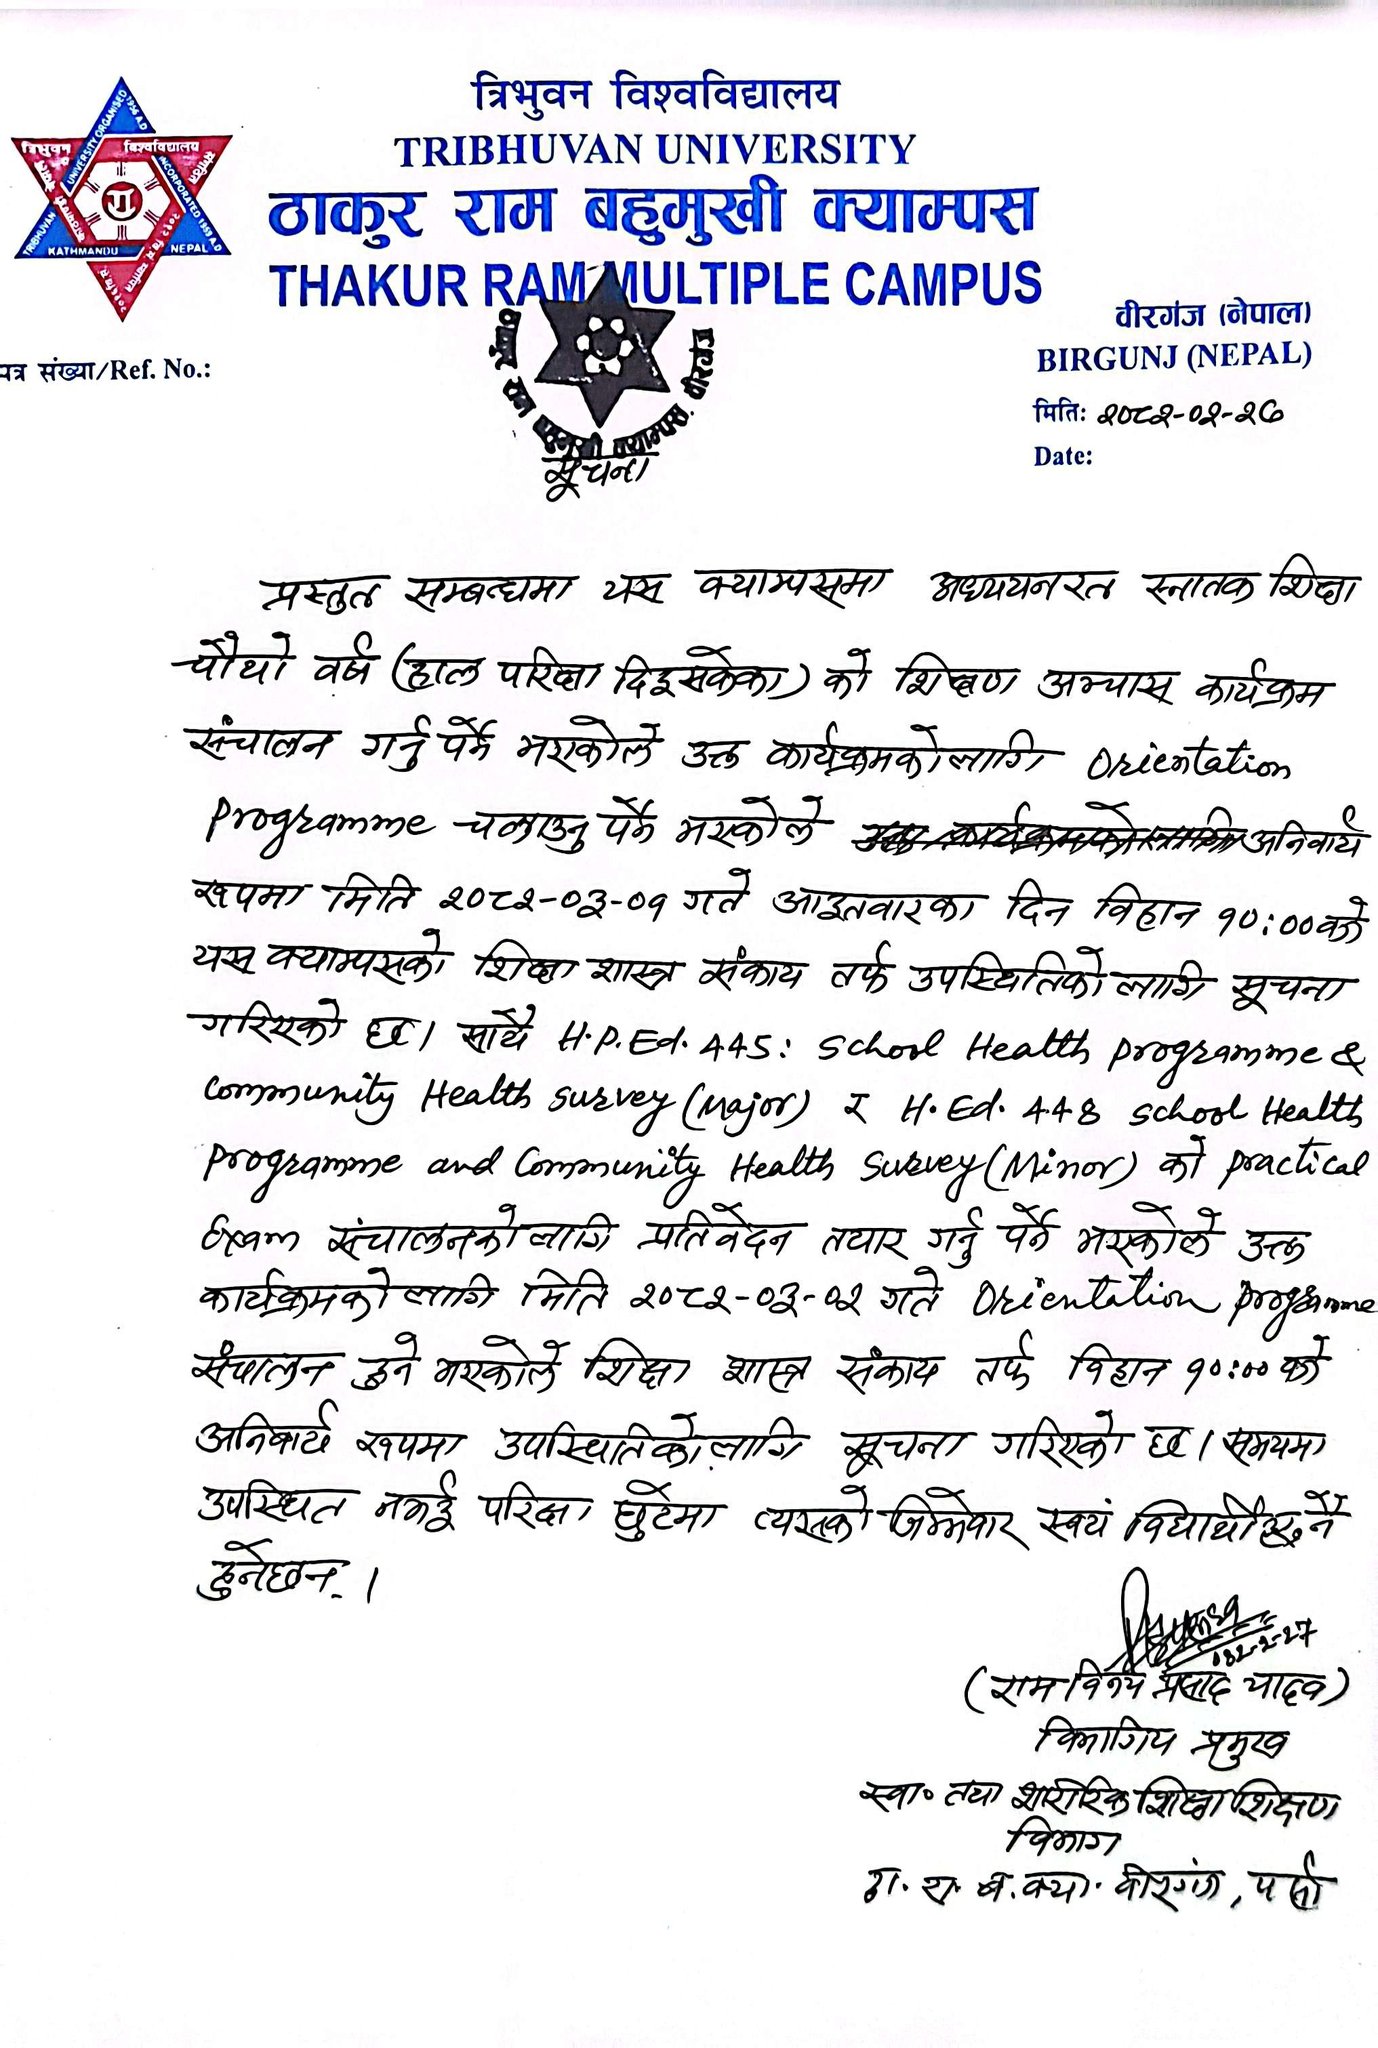 त्रिभुवन विश्वविद्यालय
TRIBHUVAN UNIVERSITY
ठाकुर राम बहुमुखी क्याम्पस
THAKUR RAM MULTIPLE CAMPUS
वीरगंज (नेपाल)
BIRGUNJ (NEPAL)
पत्र संख्या/Ref. No.:
मिति: २०८२-०२-२७
Date:
त्रिभुवन विश्वविद्यालय
UNIVERSITY ORGANISED 1956 A.D
INCORPORATED 1959 A.D
TRIBHUVAN
KATHMANDU NEPAL
ठाकुर राम बहुमुखी क्याम्पस, वीरगंज
सूचना
प्रस्तुत सम्बन्धमा यस क्याम्पसमा अध्ययनरत स्नातक शिक्षा
चौथो वर्ष (हाल परिक्षा दिइसकेका) को शिक्षण अभ्यास कार्यक्रम
संचालन गर्नु पर्ने भएकोले उक्त कार्यक्रमको लागि Orientation
Programme चलाउनु पर्ने भएकोले अनिवार्य
रूपमा मिति २०८२-०३-०१ गते आइतवारका दिन विहान १०:०० बजे
यस क्याम्पसको शिक्षा शास्त्र संकाय तर्फ उपस्थितिको लागि सूचना
गरिएको छ। साथै H.P.Ed. 445: School Health programme &
Community Health Survey (Major) र H.Ed. 448 School Health
Programme and Community Health Survey (Minor) को practical
Exam संचालनको लागि प्रतिवेदन तयार गर्नु पर्ने भएकोले उक्त
कार्यक्रमको लागि मिति २०८२-०३-०२ गते Orientation programme
संचालन हुने भएकोले शिक्षा शास्त्र संकाय तर्फ विहान १०:०० बजे
अनिवार्य रूपमा उपस्थितिको लागि सूचना गरिएको छ। समयमा
उपस्थित नभई परिक्षा छुटेमा त्यसको जिम्मेवार स्वयं विद्यार्थी हुने
हुनेछन्।
082-2-27
(राम विनय प्रसाद यादव)
विभागिय प्रमुख
स्वा॰ तथा शारीरिक शिक्षा शिक्षण
विभाग
ठा. रा. ब. क्या. वीरगंज, पर्सा